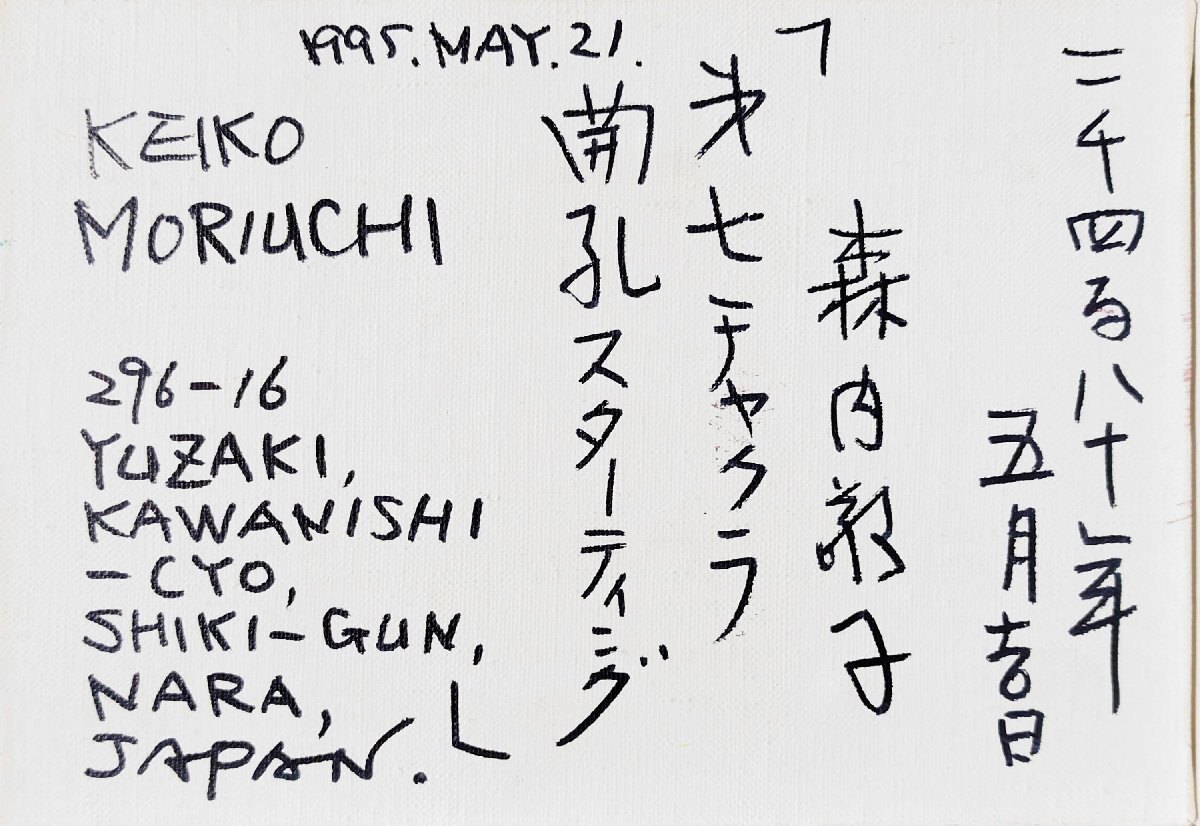 二千四百八十年
五月吉日
森内敬子
「第七チャクラ
開孔スターティング」
1995.MAY.21.
KEIKO
MORIUCHI
296-16
YUZAKI,
KAWANISHI
-CYO,
SHIKI-GUN,
NARA,
JAPAN.